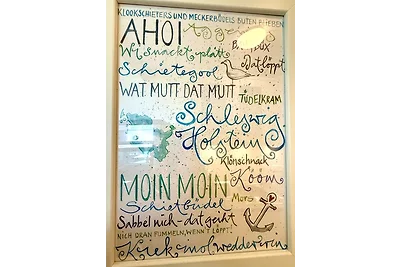 KLOOKSCHIETERS UND MECKERBÜDELS BUTEN BLIEBEN
AHOI
Wi snackt platt
Dat löppt
Schietegool
WAT MUTT DAT MUTT
TÜDELKRAM
Schleswig
Holstein
Klönschnack
MOIN MOIN
Kööm
Schietbüdel
Mors
Sabbel nich - dat geiht
NICH DRAN FUMMELN, WENN'T LÖPPT!
Kiek mol wedder in